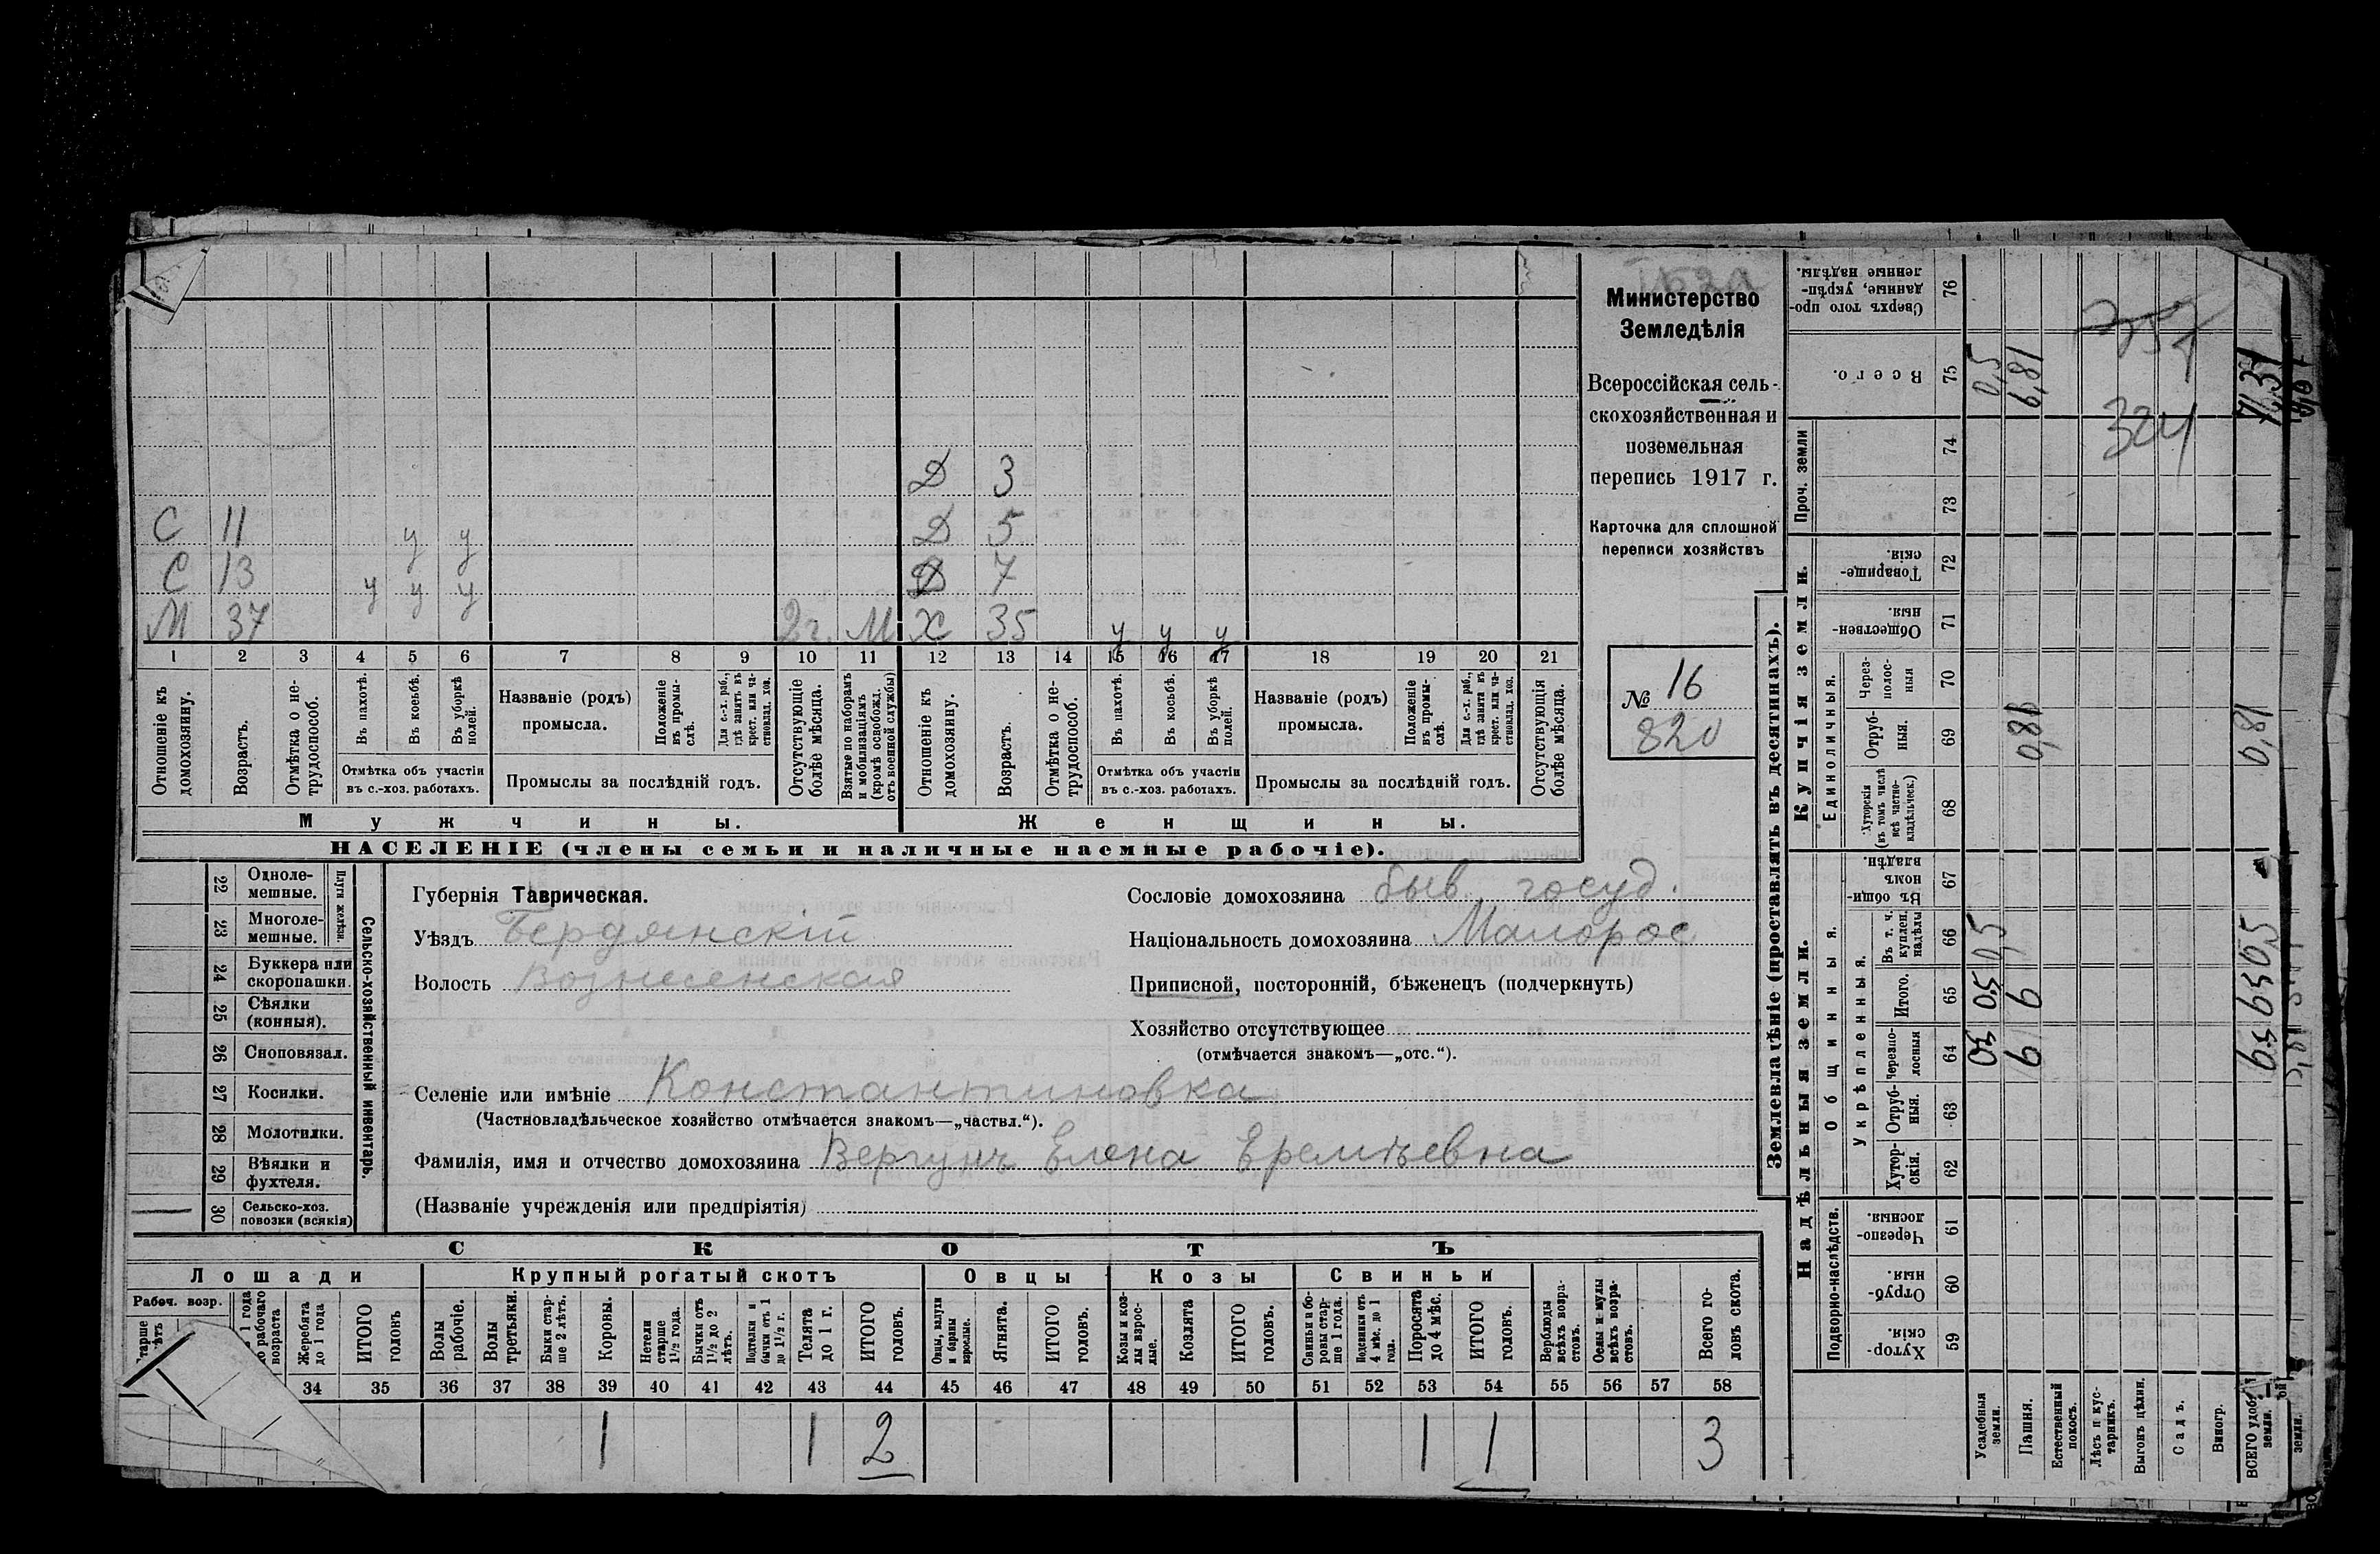 Министерство
Земледѣлія
Всероссійская сель-
скохозяйственная и
поземельная
перепись 1917 г.
Карточка для сплошной
переписи хозяйствъ
№ 16
820
Д 3
С 11 у у Д 5
С 13 у у у Д 7
М 37 2г. М Х 35 у у у
1 2 3 4 5 6 7 8 9 10 11 12 13 14 15 16 17 18 19 20 21
Отношеніе къ домохозяину.
Возрастъ.
Отмѣтка о не-трудоспособ.
Въ пахотѣ.
Въ косьбѣ.
Въ уборкѣ полей.
Отмѣтка объ участіи
въ с.-хоз. работахъ.
Названіе (родъ)
промысла.
Положеніе въ промы-слѣ.
Для с.-х. раб., гдѣ занятъ въ крест. или ча-стновлад. хоз.
Промыслы за послѣдній годъ.
Отсутствующіе болѣе мѣсяца.
Взятые по наборамъ и мобилизаціямъ (кромѣ освобожд. отъ военной службы)
Отношеніе къ домохозяину.
Возрастъ.
Отмѣтка о не-трудоспособ.
Въ пахотѣ.
Въ косьбѣ.
Въ уборкѣ полей.
Отмѣтка объ участіи
въ с.-хоз. работахъ.
Названіе (родъ)
промысла.
Положеніе въ промы-слѣ.
Для с.-х. раб., гдѣ занятъ въ крест. или ча-стновлад. хоз.
Промыслы за послѣдній годъ.
Отсутствующія болѣе мѣсяца.
Мужчины. Женщины.
НАСЕЛЕНІЕ (члены семьи и наличные наемные рабочіе).
22 Одноле-мешные.
23 Многоле-мешные.
Плуги желѣзн.
24 Буккера или скоропашки.
25 Сѣялки (конныя).
26 Сноповязал.
27 Косилки.
28 Молотилки.
29 Вѣялки и фухтеля.
30 Сельско-хоз. повозки (всякія)
Сельско-хозяйственный инвентарь.
Губернія Таврическая.
Уѣздъ Бердянскій
Волость Вознесенская
Сословіе домохозяина быв. госуд.
Національность домохозяина Малорос
Приписной, посторонній, бѣженецъ (подчеркнуть)
Хозяйство отсутствующее
(отмѣчается знакомъ—„отс.“).
Селеніе или имѣніе Константиновка
(Частновладѣльческое хозяйство отмѣчается знакомъ—„частвл.“).
Фамилія, имя и отчество домохозяина Вергунъ Елена Еремѣевна
(Названіе учрежденія или предпріятія)
СКОТЪ
Лошади Крупный рогатый скотъ Овцы Козы Свиньи
Рабоч. возр.
Жеребята до 1 года
ИТОГО головъ
Волы рабочіе.
Волы третьяки.
Быки стар-ше 2 лѣтъ.
Коровы.
Нетели старше 1½ года.
Бычки отъ 1½ до 2 лѣтъ.
Подтелки и бычки отъ 1 до 1½ г.
Телята до 1 г.
ИТОГО головъ.
Овцы, валухи и бараны взрослые.
Ягнята.
ИТОГО головъ.
Козы и коз-лы взрос-лые.
Козлята
ИТОГО головъ.
Свиньи и бо-ровы стар-ше 1 года.
Подсвинки отъ 4 мѣс. до 1 года.
Поросята до 4 мѣс.
ИТОГО головъ.
Верблюды всѣхъ возра-стовъ.
Ослы и мулы всѣхъ возра-стовъ.
Всего го-ловъ скота.
34 35 36 37 38 39 40 41 42 43 44 45 46 47 48 49 50 51 52 53 54 55 56 57 58
1 1 2 1 1 3
Землевладѣніе (проставлять въ десятинахъ).
Надѣльныя земли. Купчія земли. Проч. земли
Подворно-наслѣдств. Общинныя. Укрѣпленныя. Единоличныя.
Хутор-скія. 59
Отруб-ныя. 60
Черезпо-лосныя. 61
Хутор-скія. 62
Отруб-ныя. 63
Черезпо-лосныя 64
Итого. 65
Въ т. ч. куплен. надѣлы 66
Въ общи-номъ владѣн. 67
Хуторскія (въ томъ числѣ всѣ частно-владѣльческ.) 68
Отруб-ныя. 69
Через-полос-ныя 70
Обществен-ныя. 71
Товарище-скія. 72
73
74
Всего. 75
Сверхъ того про-данные, укрѣп-ленные надѣлы. 76
Усадебныя земли. 0,5 0,5 0,5 0,5
Пашня. 6 6 0,81 6,81
Естественный покосъ.
Лѣсъ и кус-тарникъ.
Выгонъ цѣлин.
Садъ.
Виногр.
ВСЕГО удобн. земли. 6,5 6,5 0,5 0,81 7,31
324